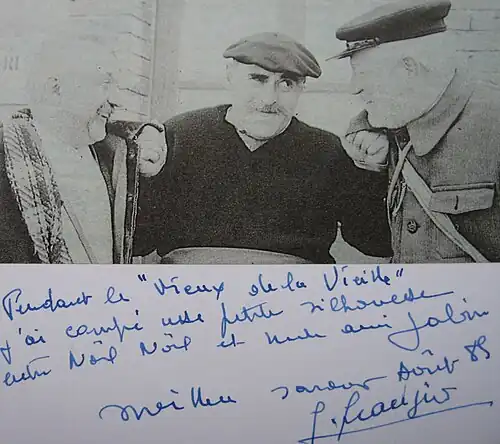 RI
Pendant le "Vieux de la Vieille"
j'ai campé une petite silhouette
entre Noël Noël et mon ami Gabin
Meilleur souvenir Août 89
G.